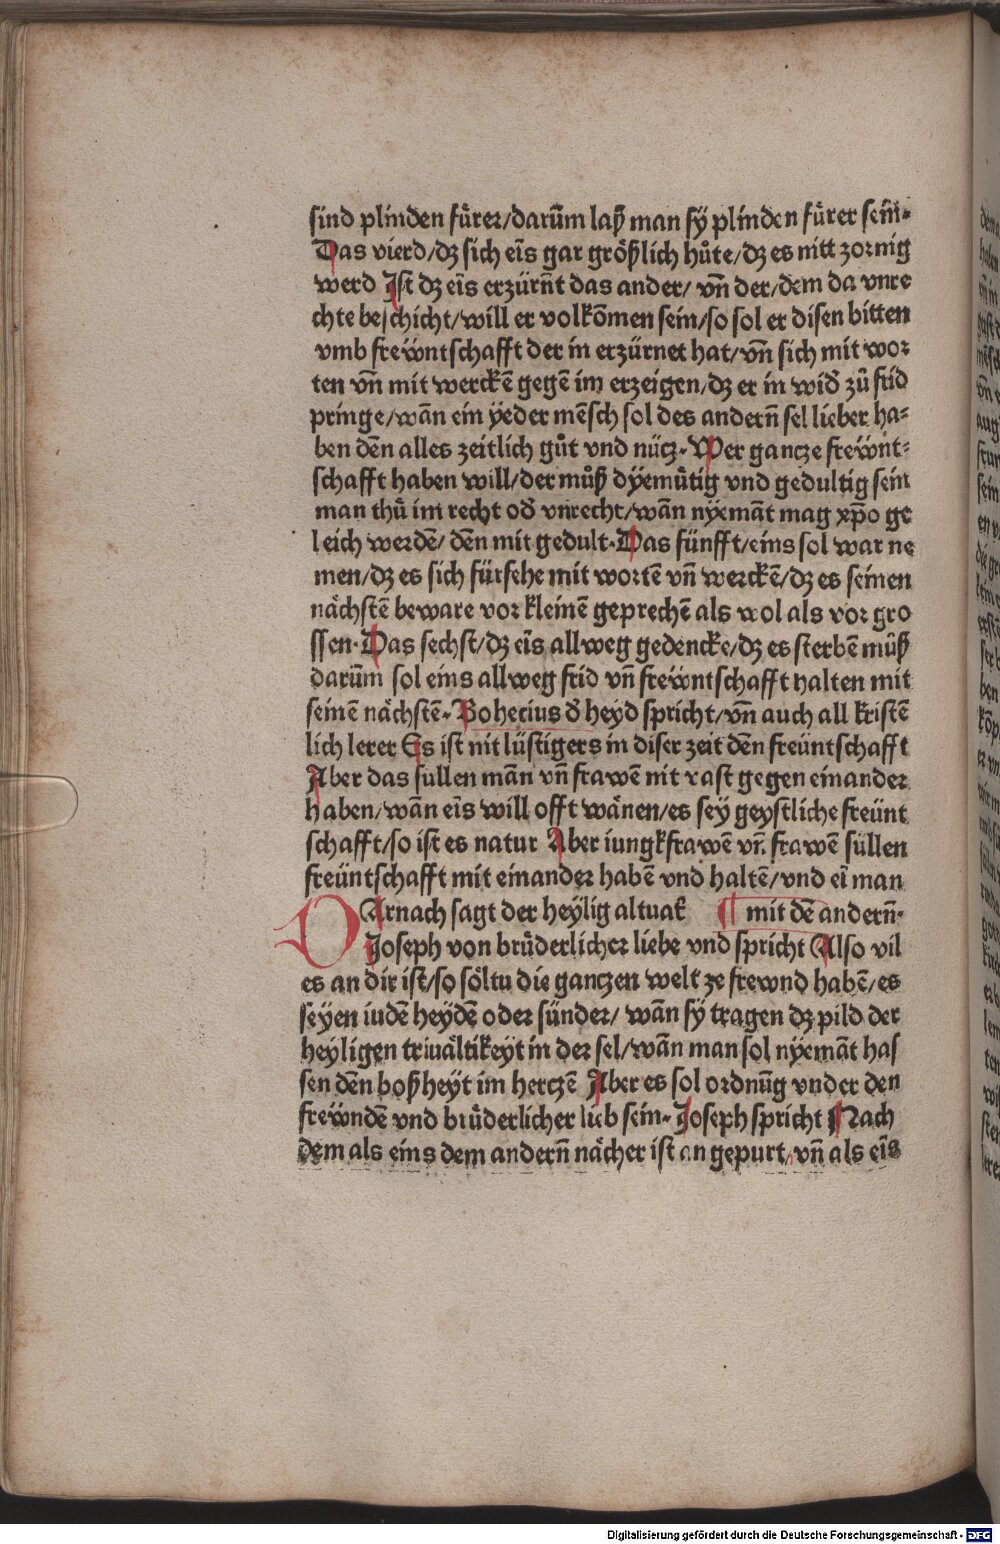 sind plinden fůrer/darūm laß man sy̆ plinden fůrer sein̄.
Das vierd/dʒ sich eīs gar grȍßlich hůte/dʒ es nitt zornig
werd Jst dʒ eīs erzürn̄t das ander/ vn̄ der/dem da vnre
chte beschicht/will er volkōmen sein/so sol er disen bitten
vmb frewntschafft der in erzürnet hat/vn̄ sich mit wor⸗
ten vn̄ mit werckē gegē im erzeigen/dʒ er in wid̄ zů frid
pringe/wān ein y̆eder mēsch sol des andern̄ sel lieber ha⸗
ben dēn alles zeitlich gůt vnd nücz. Wer gancze frewnt⸗
schafft haben will/der můß dy̆emůtig vnd gedultig sein
man thů im recht od̄ vnrecht/wān ny̆emāt mag xp̄o ge
leich werdē/ dēn mit gedult. Das fünfft/eins sol war ne
men/dʒ es sich fürsehe mit wortē vn̄ werckē/dʒ es seinen
nächstē beware vor kleinē geprechē als wol als vor gro
ssen. Das sechst/dʒ eīs allweg gedencke/dʒ es sterbē můß
darūm sol eins allweg frid vn̄ frewntschafft halten mit
seinē nächstē. Bohecius d̄ heyd spricht/vn̄ auch all kristē
lich lerer Es ist nit lüstigers in diser zeit dēn freüntschafft
Aber das süllen mān vn̄ frawē nit vast gegen einander
haben/wān eīs will offt wänen/es sey geystliche freünt
schafft/so ist es natur Aber iungkfrawē vn̄ frawē süllen
freüntschafft mit einander habē vnd haltē/vnd eī man
DArnach sagt der heylig altuat̄ ¶ mit dē andern̄.
Joseph von brůderlicher liebe vnd spricht Also vil
es an dir ist/so söltu die ganczen welt ze frewnd habē/es
sey̆en iudē hey̆dē oder sünder/ wān sy̆ tragen dʒ pild der
hey̆ligen triuältikeyt in der sel/wān man sol ny̆emāt has
sen dēn boßheyt im herczē Aber es sol ordnūg vnder den
frewndē vnd brůderlicher lieb sein. Joseph spricht Nach
dem als eins dem andern̄ nächer ist an gepurt/vn̄ als eīs
Digitalisierung gefördert durch die Deutsche Forschungsgemeinschaft - DFG